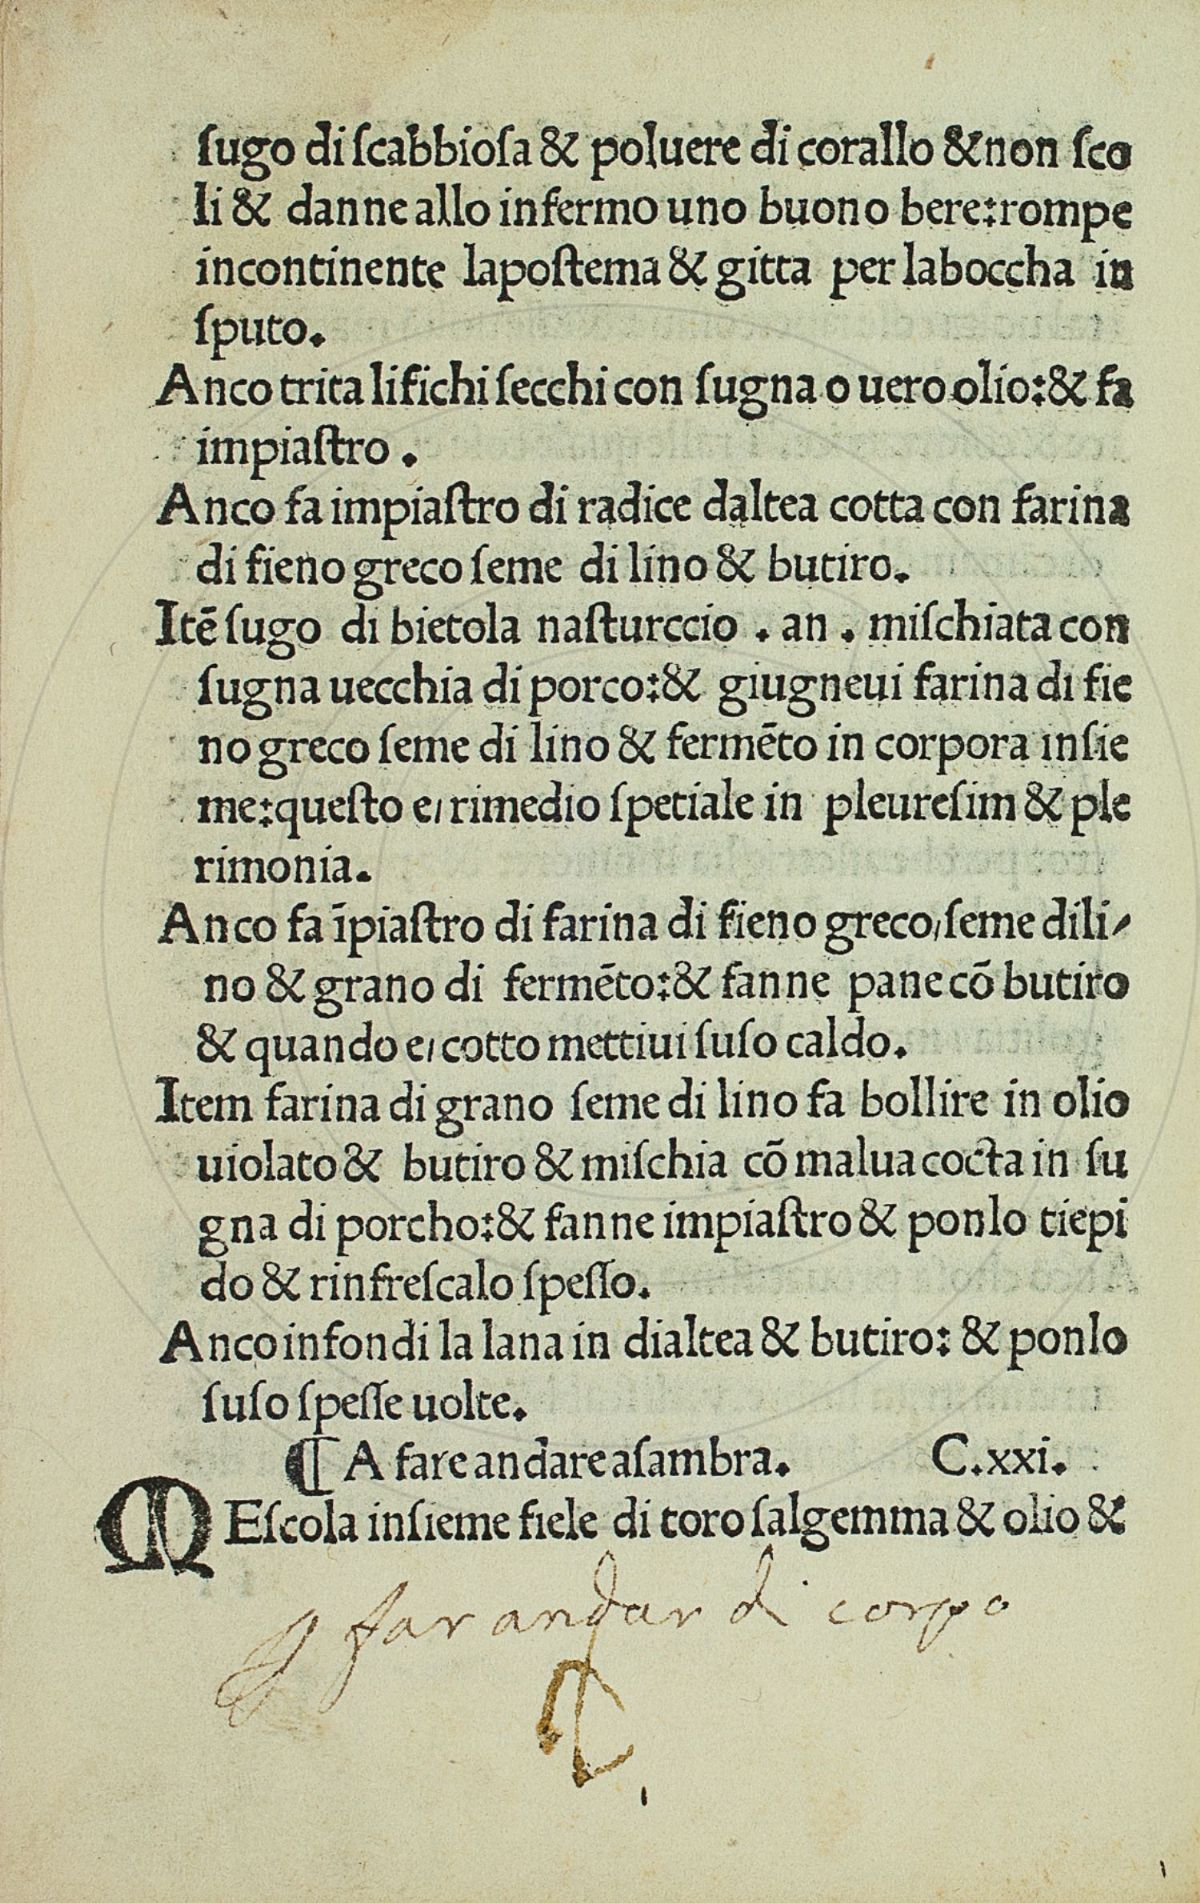 sugo di scabbiosa & poluere di corallo & non sco
li & danne allo infermo uno buono bere:rompe
incontinente lapostema & gitta per laboccha in
sputo.
Anco trita li fichi secchi con sugna o uero olio:& fa
impiastro .
Anco fa impiastro di radice daltea cotta con farina
di fieno greco seme di lino & butiro.
Itē sugo di bietola nasturccio . an . mischiata con
sugna uecchia di porco:& giugneui farina di fie
no greco seme di lino & fermēto in corpora insie
me:questo e/ rimedio spetiale in pleuresim & ple
rimonia.
Anco fa īpiastro di farina di fieno greco/seme di li/
no & grano di fermēto:& fanne pane cō butiro
& quando e/ cotto mettiui suso caldo.
Item farina di grano seme di lino fa bollire in olio
uiolato & butiro & mischia cō malua cocta in su
gna di porcho:& fanne impiastro & ponlo tiepi
do & rinfrescalo spesso.
Anco infondi la lana in dialtea & butiro: & ponlo
suso spesse uolte.
¶ A fare andare asambra. C.xxi.
MEscola insieme fiele di toro salgemma & olio &
far andar di corpo